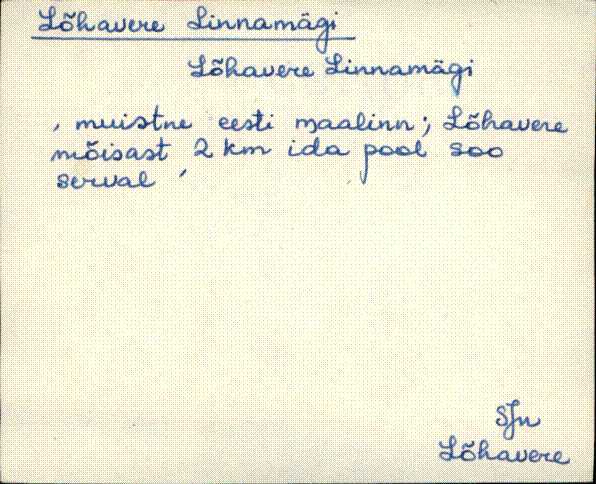 Lõhavere Linnamägi
Lõhavere Linnamägi
, muistne eesti maalinn; Lõhavere
mõisast 2 km ida pool soo
serval '
SJn
Lõhavere